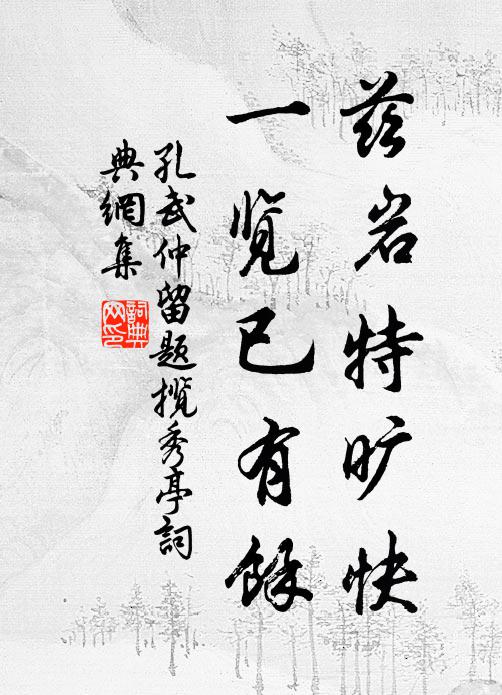 兹岩特旷快
一览已有馀
孔武仲留题揽秀亭詞
典網集
詞典网印